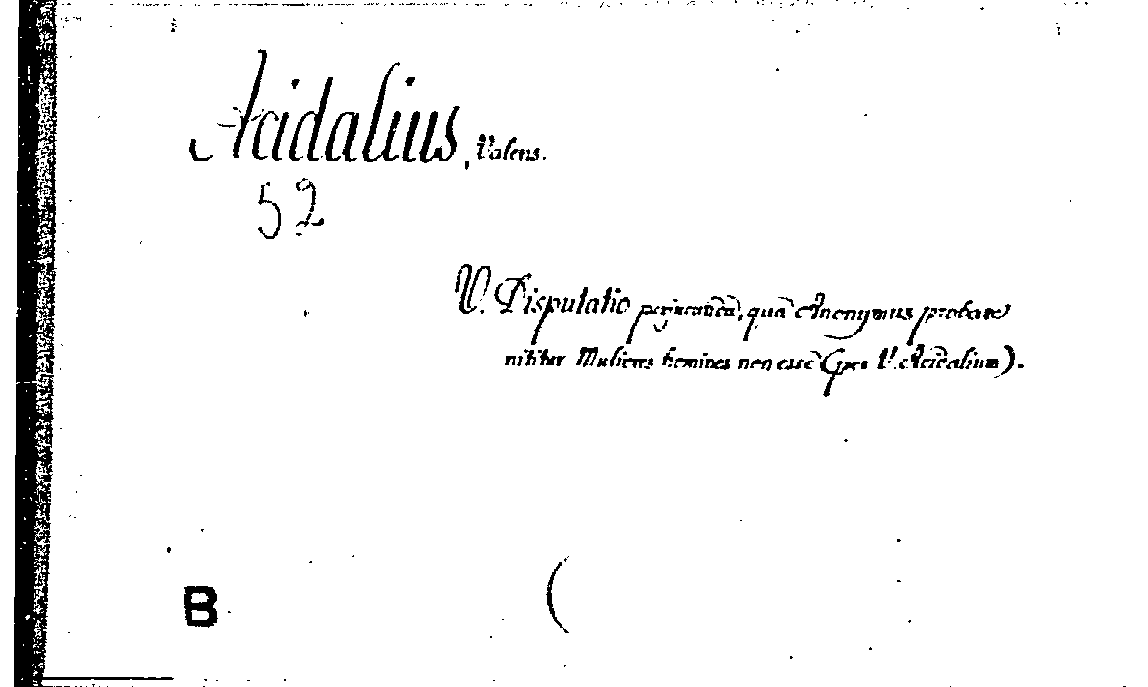 Acidalius, Valens.
52
V. Disputatio perjucundā, quā Anonymus probare
nititur Mulieres homines non esse (per V. Acidalium).
B
(